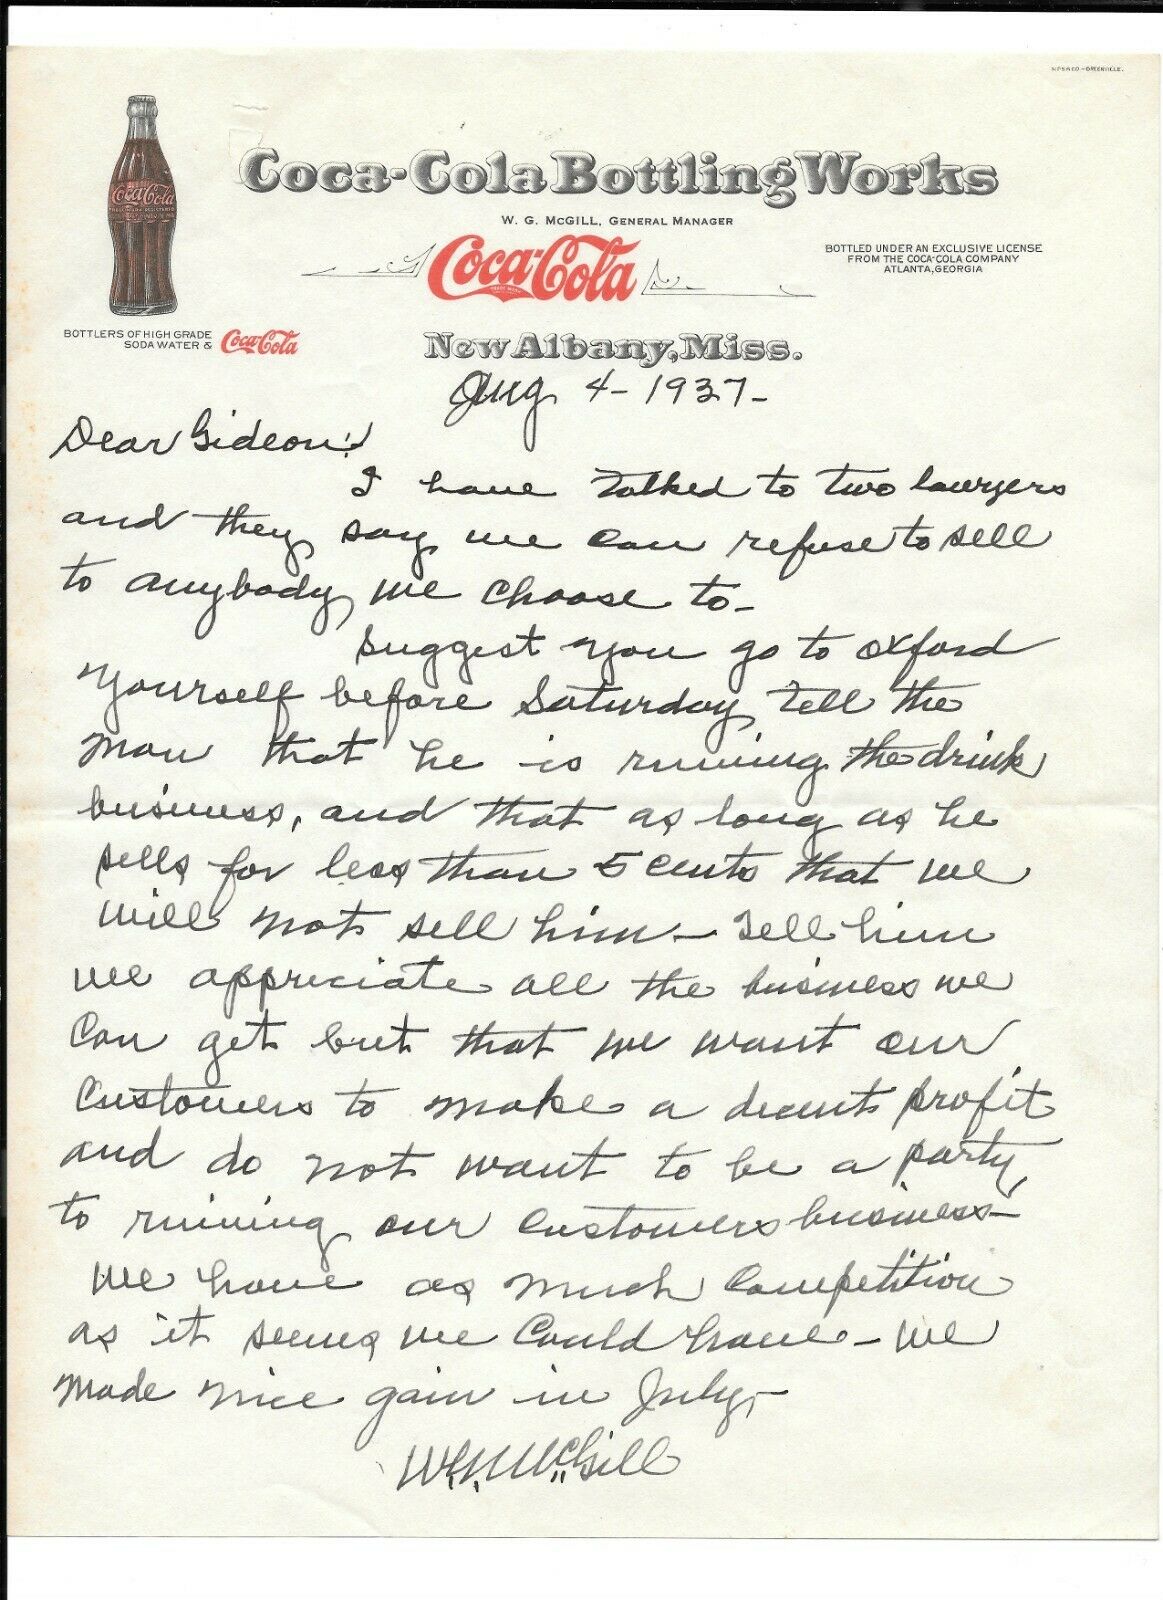 N.P.& N.CO.-GREENVILLE.
Coca-Cola Bottling Works
W. G. McGILL, GENERAL MANAGER
Coca-Cola
TRADE MARK
BOTTLED UNDER AN EXCLUSIVE LICENSE
FROM THE COCA-COLA COMPANY
ATLANTA, GEORGIA
Coca-Cola
BOTTLERS OF HIGH GRADE
SODA WATER & Coca-Cola
New Albany, Miss.
Aug 4 - 1937 -
Dear Gideon:
I have talked to two lawyers
and they say we can refuse to sell
to anybody we choose to -
Suggest you go to Oxford
yourself before Saturday tell the
man that he is ruining the drink
business, and that as long as he
sells for less than 5 cents that we
will not sell him - Tell him
we appreciate all the business we
can get but that we want our
customers to make a decent profit
and do not want to be a party
to ruining our customers business -
We have as much competition
as it seems we could have - We
made nice gain in July -
W.G. McGill